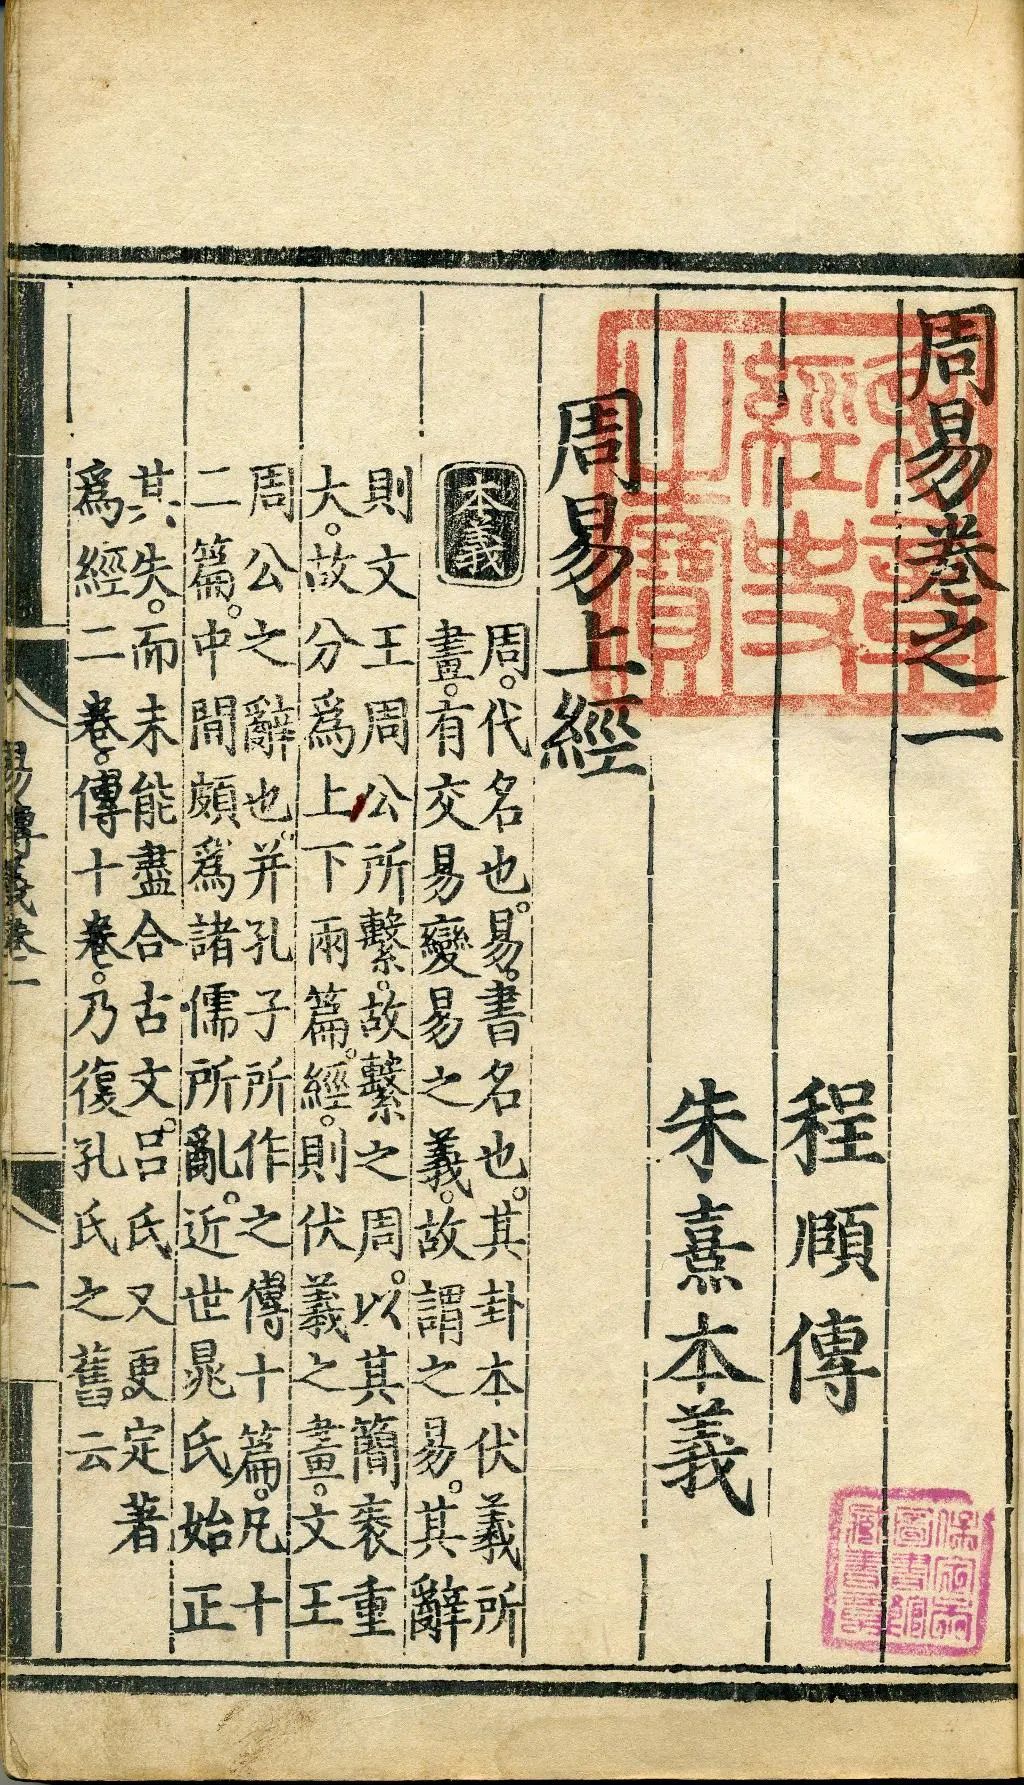 周易卷之一
程頤傳
朱熹本義
周易上經
本義
周。代名也。易。書名也。其卦本伏羲所
畫。有交易變易之義。故謂之易。其辭
則文王周公所繫。故繫之周。以其簡袠重
大。故分爲上下兩篇。經。則伏羲之畫。文王
周公之辭也。并孔子所作之傳十篇。凡十
二篇。中間頗爲諸儒所亂。近世晁氏始正
其失。而未能盡合古文。吕氏又更定著
爲經二卷。傳十卷。乃復孔氏之舊云
易傳義卷一
一
表章經史之寶
圖書館